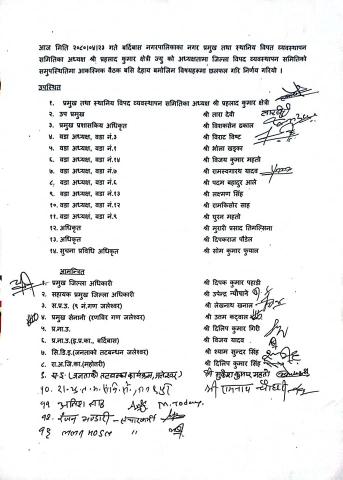 आज मिति २०८०।०४।२३ गते बर्दिबास नगरपालिकाका नगर प्रमुख तथा स्थानिय विपत व्यवस्थापन
समितिका अध्यक्ष श्री प्रहलाद कुमार क्षेत्री ज्यु को अध्यक्षतामा जिल्ला विपद व्यवस्थापन समितिको
समुपस्थितिमा आकस्मिक बैठक बसि देहाय बमोजिम विषयहरूमा छलफल गरि निर्णय गरियो ।
उपस्थित
१. प्रमुख तथा स्थानिय विपद व्यवस्थापन समितिका अध्यक्ष श्री प्रहलाद कुमार क्षेत्री
२. उप प्रमुख श्री तारा देवी
३. प्रमुख प्रशासकिय अधिकृत श्री विशकसेन ढकाल
४. वडा अध्यक्ष, वडा नं.३ श्री विराट विष्ट
५. वडा अध्यक्ष, वडा नं.१ श्री भोला खड्का
६. वडा अध्यक्ष, वडा नं.१४ श्री विजय कुमार महतो
७. वडा अध्यक्ष, वडा नं.७ श्री रामस्वगारथ यादव
८. वडा अध्यक्ष, वडा नं.६ श्री पदम बहादुर आले
९. वडा अध्यक्ष, वडा नं.१३ श्री लक्ष्मण सिंह
१०. वडा अध्यक्ष, वडा नं.११ श्री रामकिसोर साह
११. वडा अध्यक्ष, वडा नं.९ श्री घुरन महतो
१२. अधिकृत श्री मुरारी प्रसाद तिमल्सिना
१३. अधिकृत श्री दिपकराज पौडेल
१४. सुचना प्रविधि अधिकृत श्री सोम कुमार फुयाल
आमन्त्रित
१. प्रमुख जिल्ला अधिकारी श्री दिपक कुमार पहाडी
२. सहायक प्रमुख जिल्ला अधिकारी श्री उपेन्द्र न्यौपाने
३. स.प्र.उ. (१ नं.गण जलेश्वर) श्री लेखनाथ खनाल
४. प्रमुख सेनानी (रणविर गण जलेश्वर) श्री उत्तम कटुवाल
५. प्र.ना.उ. श्री दिलिप कुमार गिरी
६. प्र.ना.उ.(इ.प्र.का., बर्दिबास) श्री विजय यादव
७. सि.डि.ई.(जनताको तटबन्धन जलेश्वर) श्री श्याम सुन्दर सिंह
८. रा.अ.जि.का.(महोत्तरी) श्री दिलिप कुमार सिंह
श्री मुकेश कुमार महतो
१०. श्री रामनाथ चौधरी
११
१२. रंजन भण्डारी - संचारकर्मी
१३ "